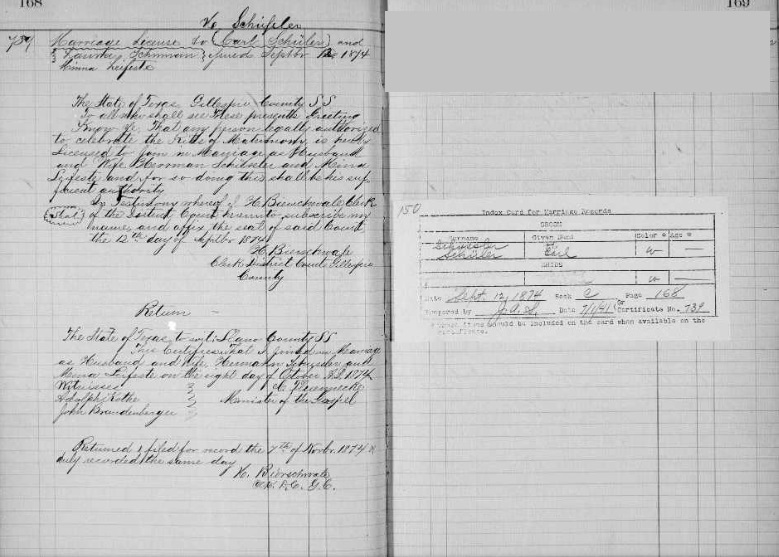 168
169
Schüßler
Marriage License to (Carl Schüler) and
issued Septbr 12 1874
Minna Leifeste
The State of Texas Gillespie County SS
To all who shall see These presents Greeting
Know Ye That any person legally authorized
to celebrate the Rites of Matrimony is hereby
Licensed to join in Marriage as Husband
and Wife Herman Schüssler and Minna
Leifeste and for so doing this shall be his suf
ficient authority
In Testimony whereof I H. Bierschwale Clerk
(Seal) of the District Court hereunto subscribe my
name and affix the seal of said Court
the 12th day of Septbr 1874
H. Bierschwale
Clerk District Court Gillespie
County
Return
The State of Texas to wit: Llano County SS
This Certifies That I joined in Marriage
as Husband and Wife Hermann Schüssler and
Minna Leifeste on the eight day of October A.D. 1874
Witnesses C.
Adolph Kothe Minister of the Gospel
John Brandenberger
Returned & filed for record the 7th of Novbr. 1874 &
duly recorded the same day
H. Bierschwale
G.C.
150
Index Card for Marriage Records
GROOM
Surname Given Name Color * Age *
Schüssler
Schüler Carl w —
BRIDE
w —
Date Sept. 12, 1874 Book C Page 168
Prepared by J.A.S. Date 7/1/41 or Certificate No. 739
* These items should be included on the card when available on the
certificate.